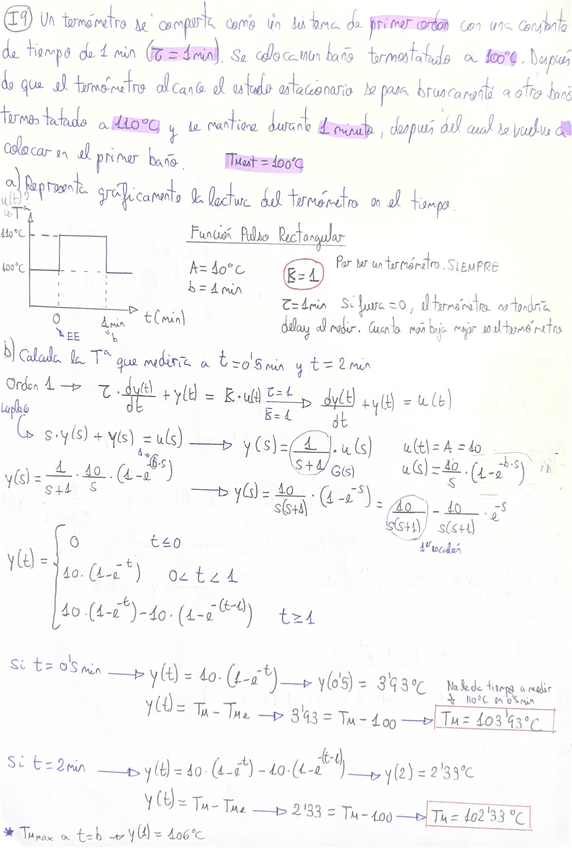 I9 Un termómetro se comporta como un sistema de primer orden con una constante
de tiempo de 1 min (τ = 1 min). Se coloca en un baño termostatado a 100°C. Después
de que el termómetro alcance el estado estacionario se pasa bruscamente a otro baño
termostatado a 110°C y se mantiene durante 1 minuto, después del cual se vuelve a
colocar en el primer baño. TMest = 100°C
a) Representa gráficamente la lectura del termómetro en el tiempo.
u(t)?
Tª
110°C
100°C
0 1min t(min)
EE b
Función Pulso Rectangular
A = 10°C
b = 1 min
K = 1 Por ser un termómetro. SIEMPRE
τ = 1 min Si fuera = 0, el termómetro no tendría
delay al medir. Cuanto más bajo mejor es el termómetro
b) Calcula la Tª que mediría a t = 0'5 min y t = 2 min
Orden 1 → τ · dy(t)/dt + y(t) = K · u(t) τ=1 K=1 → dy(t)/dt + y(t) = u(t)
Laplace
s · y(s) + y(s) = u(s) → y(s) = 1/(s+1) · u(s) u(t) = A = 10
G(s) u(s) = 10/s · (1-e^(-b·s))
y(s) = 1/(s+1) · 10/s · (1-e^(-b·s)) → y(s) = 10/(s(s+1)) · (1-e^-s) = 10/(s(s+1)) - 10/(s(s+1)) · e^-s
1er escalón
y(t) = { 0 t ≤ 0
10 · (1-e^-t) 0 < t < 1
10 · (1-e^-t) - 10 · (1-e^-(t-1)) t ≥ 1
Si t = 0'5 min → y(t) = 10 · (1-e^-t) → y(0'5) = 3'93°C
No le da tiempo a medir
110°C en 0'5 min
y(t) = TM - TMe → 3'93 = TM - 100 → TM = 103'93°C
Si t = 2 min → y(t) = 10 · (1-e^-t) - 10 · (1-e^-(t-1)) → y(2) = 2'33°C
y(t) = TM - TMe → 2'33 = TM - 100 → TM = 102'33°C
* TMmax a t = b → y(1) = 106°C